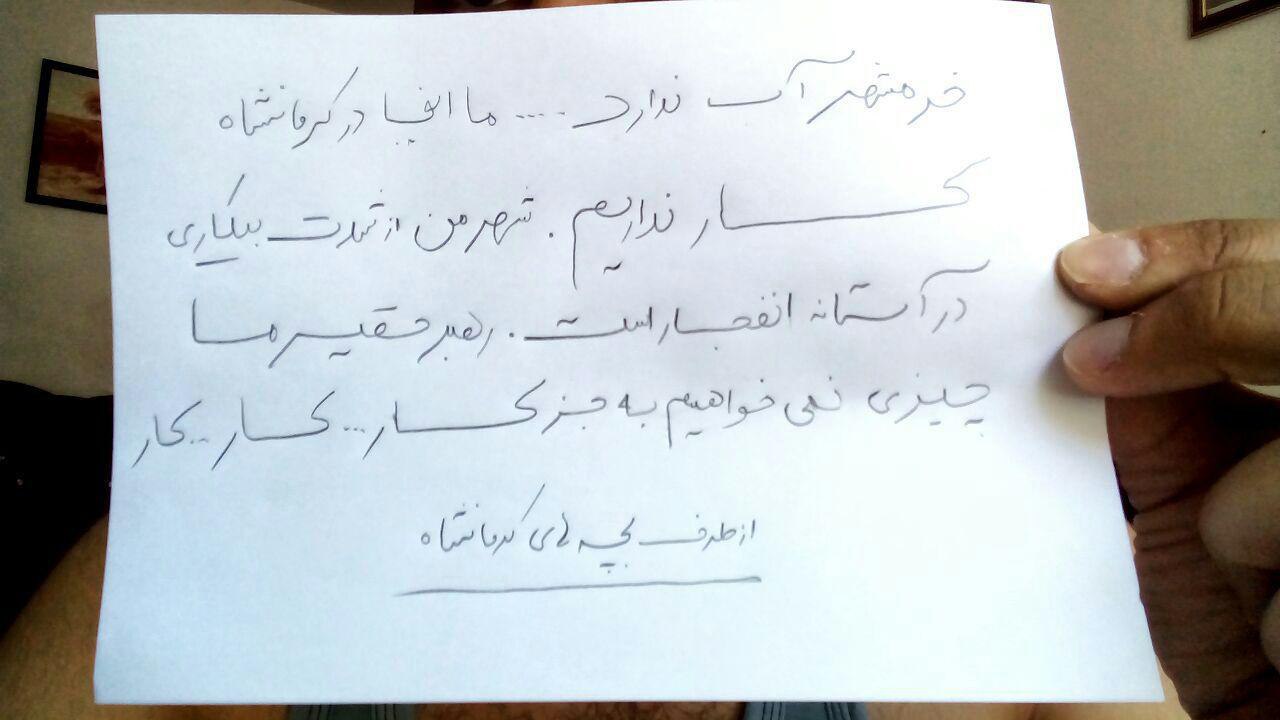 خرمشهر آب ندارد .... ما اینجا در کرمانشاه
کار نداریم . شهر من از شدت بیکاری
در آستانه انفجار است . رهبر حقیر ما
چیزی نمی خواهیم به جز کار ... کار .. کار
از طرف بچه های کرمانشاه